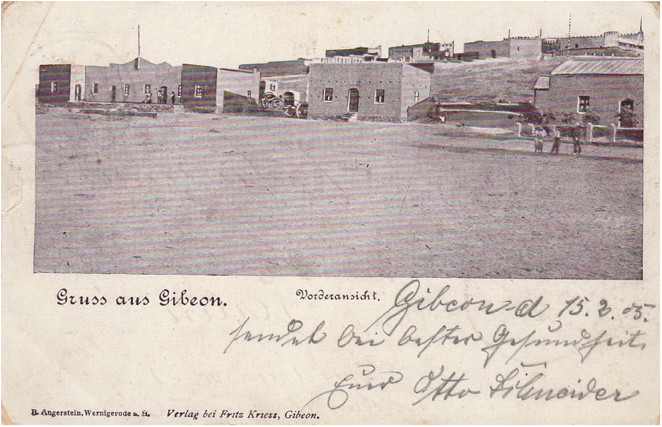 Gruss aus Gibeon.
Vorderansicht.
Gibeon d 15.2.05.
sendet bei bester Gesundheit
Euer Otto Schneider
B. Angerstein, Wernigerode a. H.
Verlag bei Fritz Kriess, Gibeon.